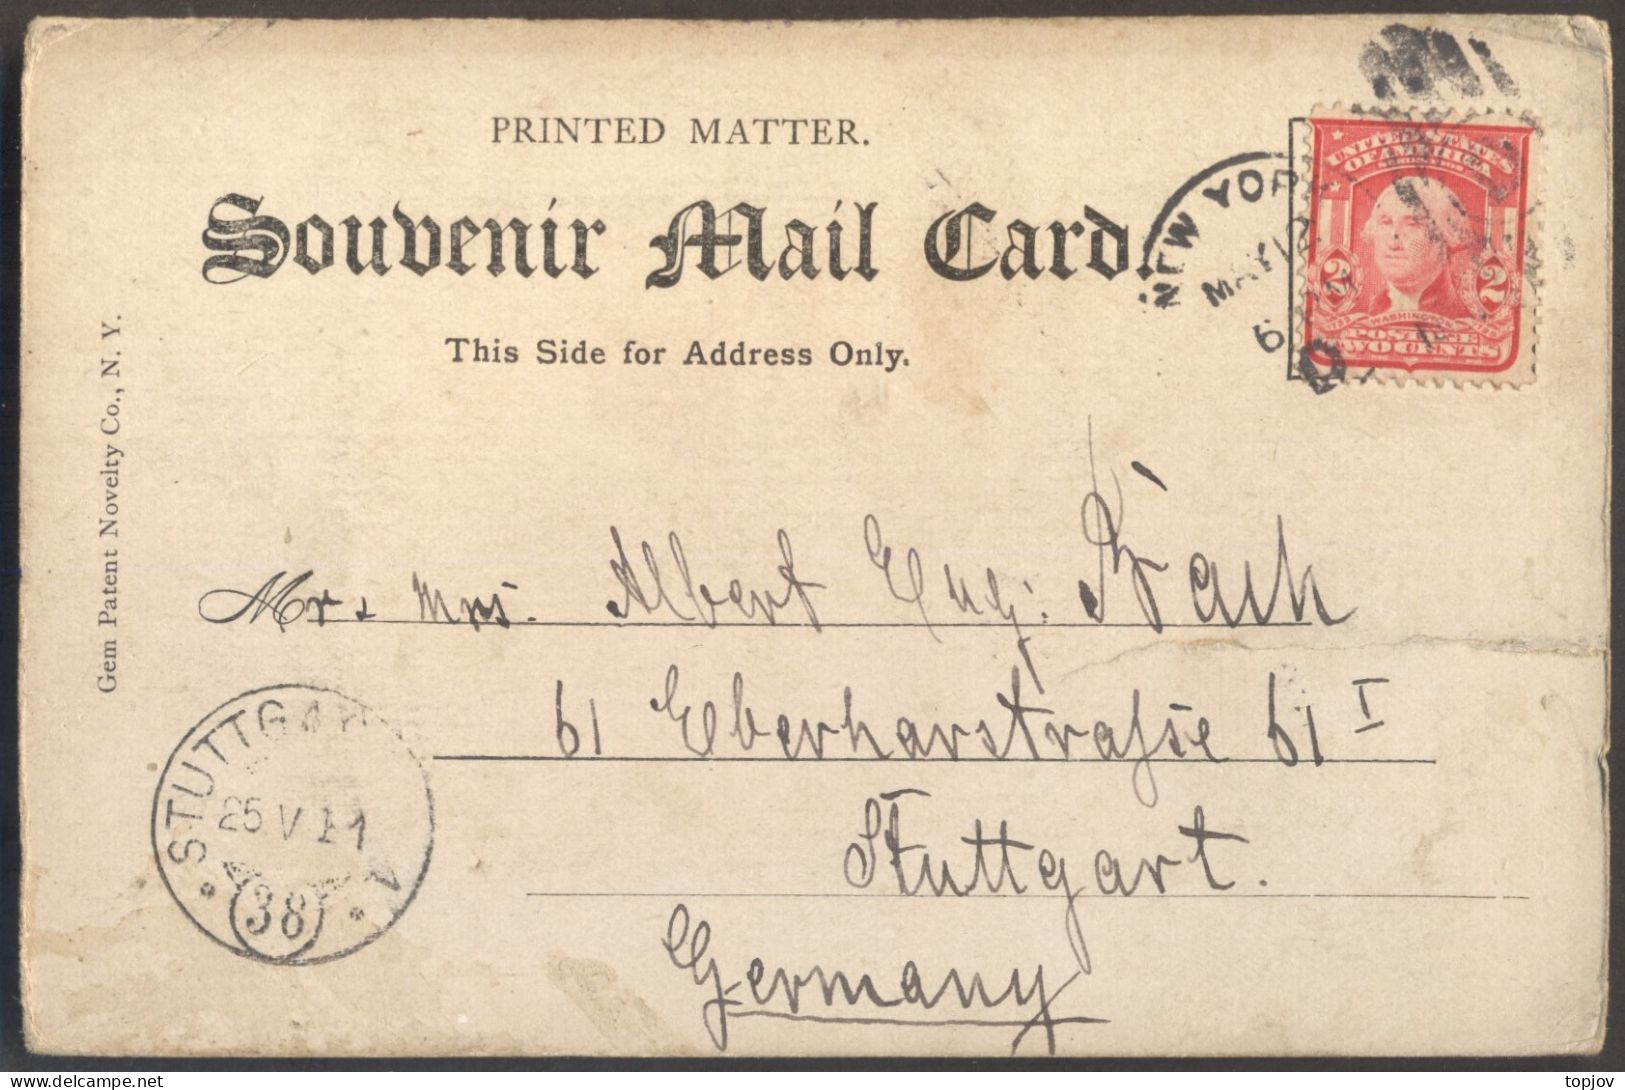 PRINTED MATTER.
Souvenir Mail Card.
This Side for Address Only.
Gem Patent Novelty Co., N. Y.
NEW YOR
MAY 12
6
UNITED STATES
OF AMERICA
2 2
WASHINGTON
POSTAGE
TWO CENTS
Mr & Mrs. Albert Eug:
61 Eberharstraße 61 I
Stuttgart.
Germany
STUTTGAR
25 V
38
topjov
delcampe.net